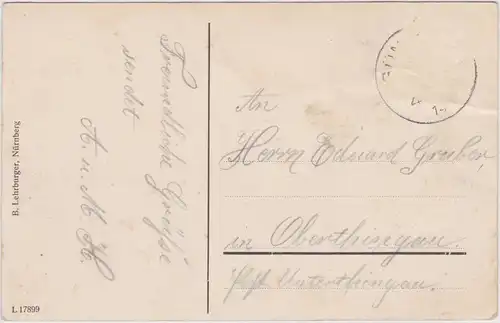 Freundliche Grüße
sendet
A. u. M. H.
B. Lehrburger, Nürnberg
L 17899
An
Herrn Eduard Gruber,
in Oberthingau.
Pst Unterthingau.